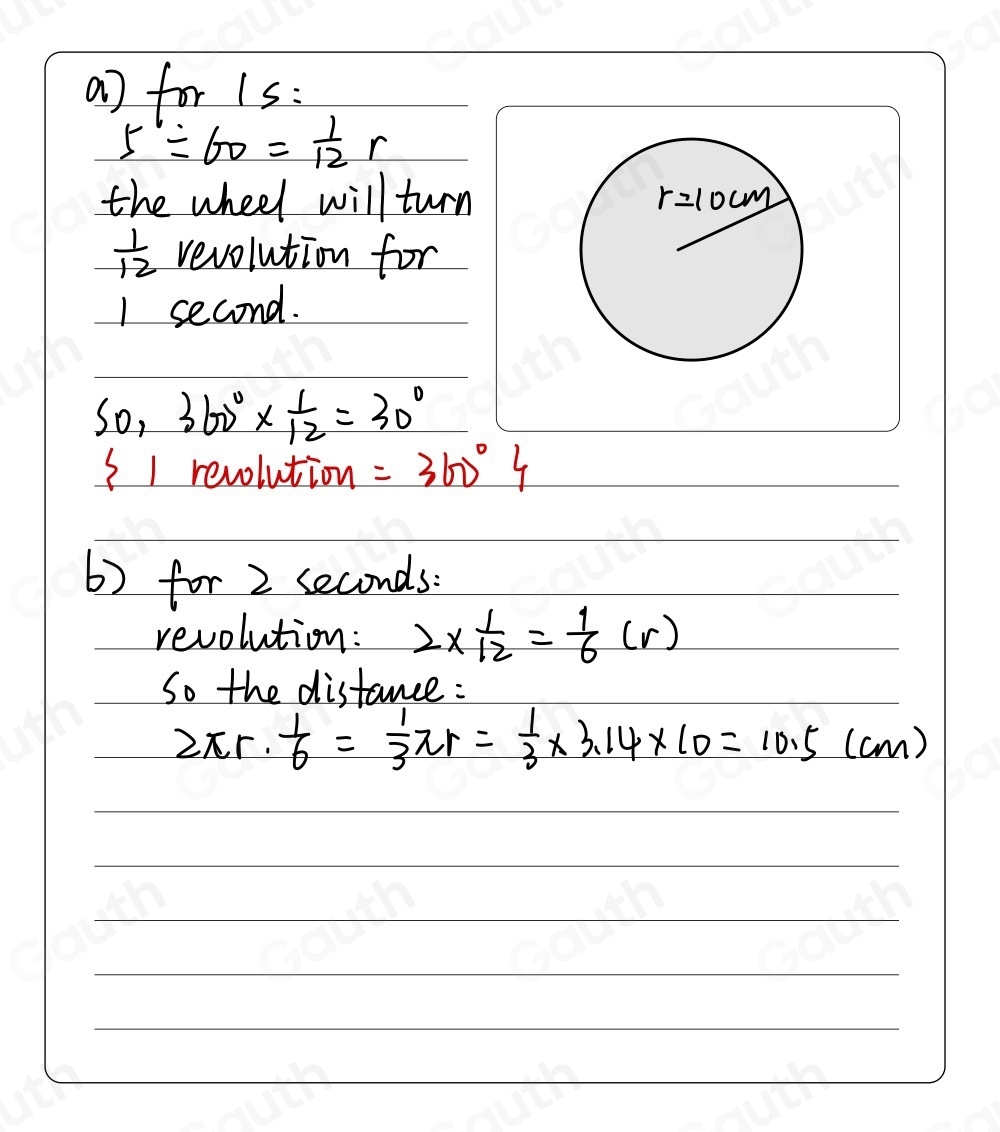 a) for 1s:
5 ÷ 60 = 1/12 r
the wheel will turn
1/12 revolution for
1 second.
r=10cm
so, 360° × 1/12 = 30°
{ 1 revolution = 360° }
b) for 2 seconds:
revolution: 2 × 1/12 = 1/6 (r)
so the distance:
2πr · 1/6 = 1/3 πr = 1/3 × 3.14 × 10 = 10.5 (cm)
Gauth